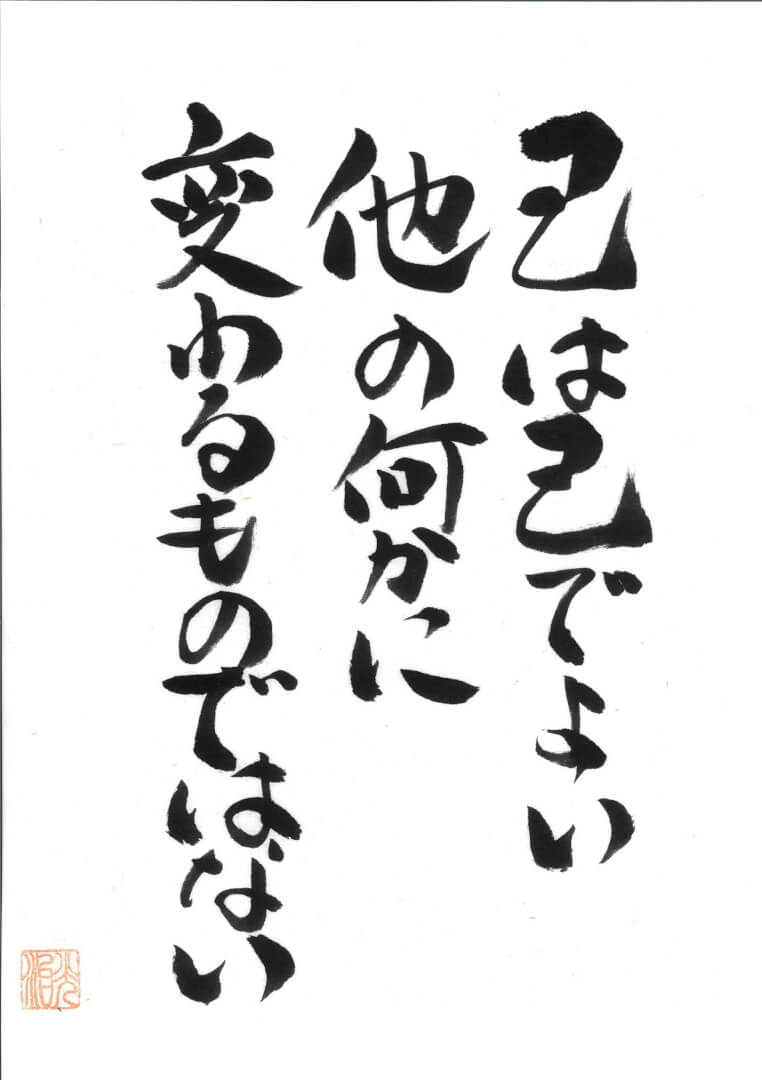 己は己でよい
他の何かに
変わるものではない